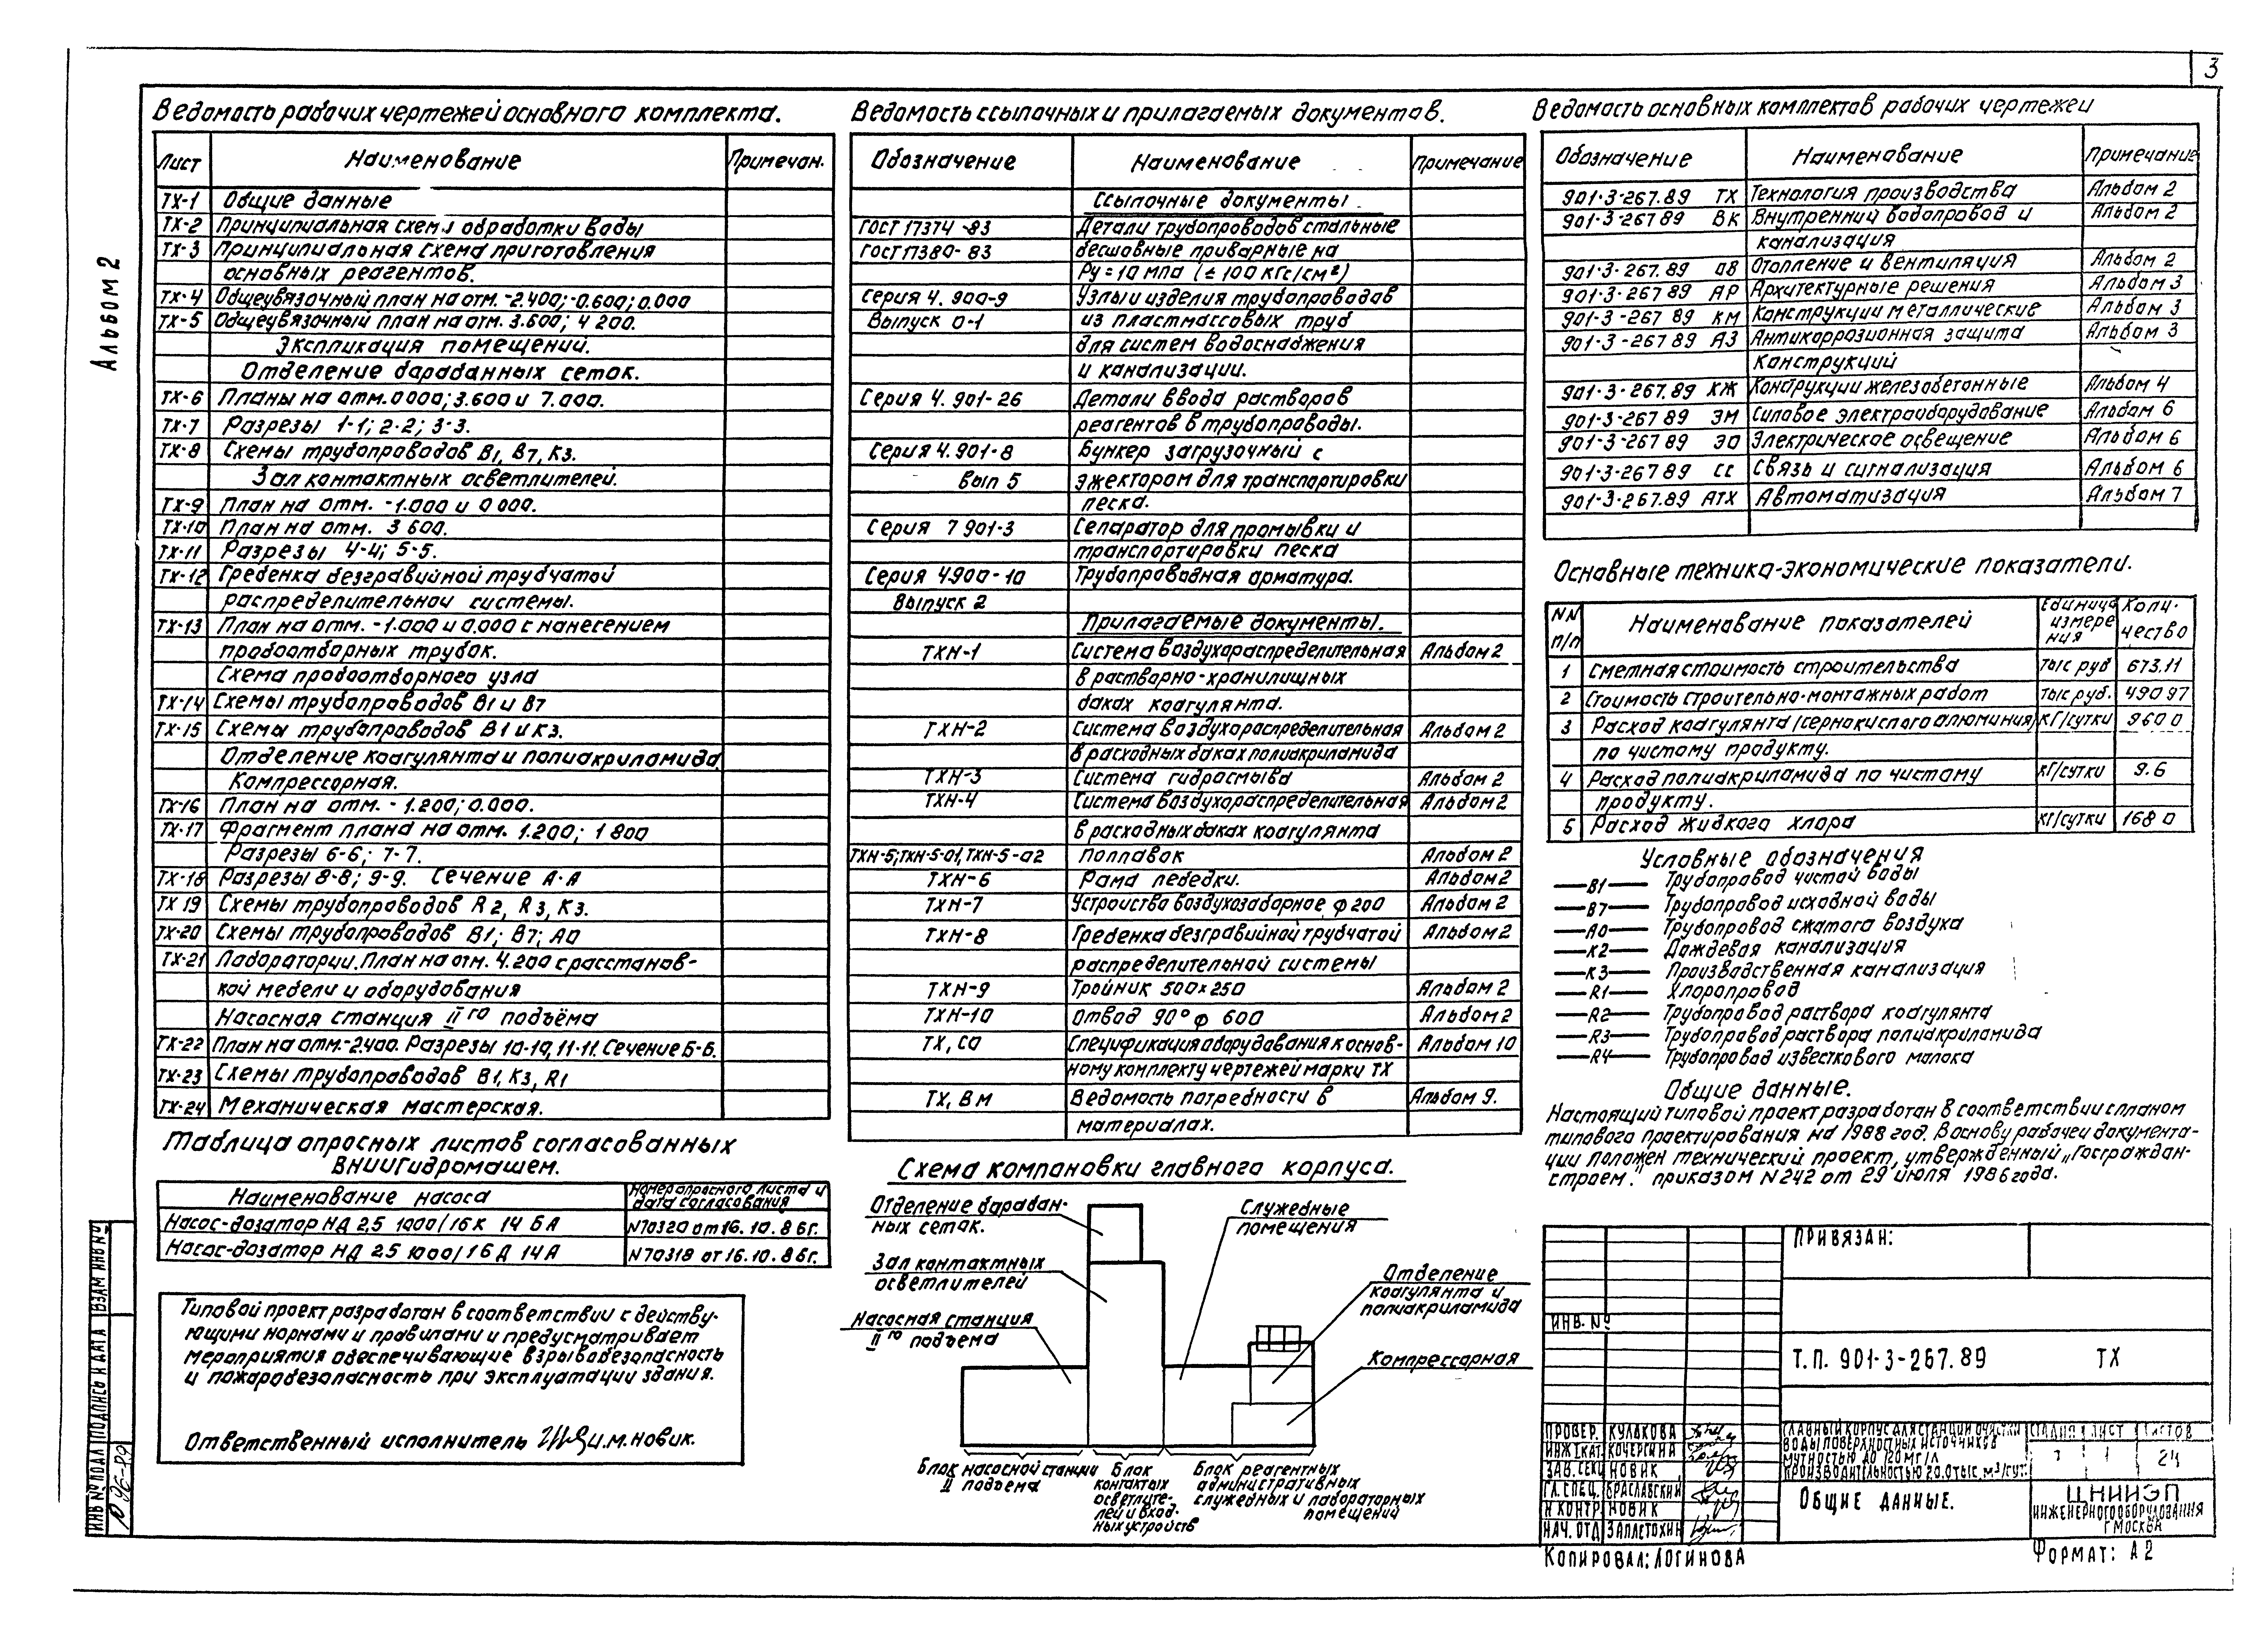 3
Альбом 2
Ведомость рабочих чертежей основного комплекта.
Лист Наименование Примечан.
ТХ-1 Общие данные
ТХ-2 Принципиальная схема обработки воды
ТХ-3 Принципиальная схема приготовления
основных реагентов.
ТХ-4 Общеувязочный план на отм. -2.400; -0.600; 0.000
ТХ-5 Общеувязочный план на отм. 3.600; 4 200.
Экспликация помещений.
Отделение барабанных сеток.
ТХ-6 Планы на отм. 0 000; 3.600 и 7.000.
ТХ-7 Разрезы 1-1; 2-2; 3-3.
ТХ-8 Схемы трубопроводов В1, В7, К3.
Зал контактных осветлителей.
ТХ-9 План на отм. -1.000 и 0 000.
ТХ-10 План на отм. 3 600.
ТХ-11 Разрезы 4-4; 5-5.
ТХ-12 Гребенка безгравийной трубчатой
распределительной системы.
ТХ-13 План на отм. -1.000 и 0.000 с нанесением
пробоотборных трубок.
Схема пробоотборного узла
ТХ-14 Схемы трубопроводов В1 и В7
ТХ-15 Схемы трубопроводов В1 и К3.
Отделение коагулянта и полиакриламида
Компрессорная.
ТХ-16 План на отм. - 1.200; 0.000.
ТХ-17 Фрагмент плана на отм. 1.200; 1 800
Разрезы 6-6; 7-7.
ТХ-18 Разрезы 8-8; 9-9. Сечение А-А
ТХ 19 Схемы трубопроводов R2, R3, К3.
ТХ-20 Схемы трубопроводов В1; В7; А0
ТХ-21 Лаборатории. План на отм. 4.200 с расстанов-
кой мебели и оборудования
Насосная станция IIго подъёма
ТХ-22 План на отм.-2.400. Разрезы 10-10, 11-11. Сечение Б-Б.
ТХ-23 Схемы трубопроводов В1, К3, R1
ТХ-24 Механическая мастерская.
Таблица опросных листов согласованных
ВНИИГидромашем.
Наименование насоса Номер опросного листа и
дата согласования
Насос-дозатор НД 2,5 1000/16 К 14 БА N70320 от 16.10.86г.
Насос-дозатор НД 2.5 1000/16 Д 14А N70318 от 16.10.86г.
Типовой проект разработан в соответствии с действу-
ющими нормами и правилами и предусматривает
мероприятия обеспечивающие взрывобезопасность
и пожаробезопасность при эксплуатации здания.
Ответственный исполнитель И.М.Новик.
Ведомость ссылочных и прилагаемых документов.
Обозначение Наименование Примечание
Ссылочные документы.
ГОСТ 17374 -83 Детали трубопроводов стальные
ГОСТ 17380- 83 бесшовные приварные на
Ру = 10 мпа (≤ 100 кгс/см²)
Серия 4. 900-9 Узлы и изделия трубопроводов
Выпуск 0-1 из пластмассовых труб
для систем водоснабжения
и канализации.
Серия 4. 901- 26 Детали ввода растворов
реагентов в трубопроводы.
Серия 4.901-8 Бункер загрузочный с
Вып 5 эжектором для транспортировки
песка.
Серия 7 901-3 Сепаратор для промывки и
транспортировки песка
Серия 4.900-10 Трубопроводная арматура.
Выпуск 2
Прилагаемые документы.
ТХН-1 Система воздухораспределительная Альбом 2
в растворно-хранилищных
баках коагулянта.
ТХН-2 Система воздухораспределительная Альбом 2
в расходных баках полиакриламида
ТХН-3 Система гидросмыва Альбом 2
ТХН-4 Система воздухораспределительная Альбом 2
в расходных баках коагулянта
ТХН-5; ТХН-5-01, ТХН-5-02 Поплавок Альбом 2
ТХН-6 Рама лебедки. Альбом 2
ТХН-7 Устройства воздухозаборное, ф 200 Альбом 2
ТХН-8 Гребенка безгравийной трубчатой Альбом 2
распределительной системы
ТХН-9 Тройник 500×250 Альбом 2
ТХН-10 Отвод 90° ф 600 Альбом 2
ТХ, СО Спецификация оборудования к основ- Альбом 10
ному комплекту чертежей марки ТХ
ТХ, ВМ Ведомость потребности в Альбом 9.
материалах.
Схема компановки главного корпуса.
Отделение барабан-
ных сеток.
Служебные
помещения
Зал контактных
осветлителей
Отделение
коагулянта и
полиакриламида
Насосная станция
IIго подъема
Компрессорная
Блок насосной станции
II подъема
Блок
контактых
осветлите-
лей и вход-
ных устройств
Блок реагентных
административных
служебных и лабораторных
помещений
Ведомость основных комплектов рабочих чертежей
Обозначение Наименование Примечание
901-3-267.89 ТХ Технология производства Альбом 2
901-3-267 89 ВК Внутренний водопровод и Альбом 2
канализация
901-3-267.89 ОВ Отопление и вентиляция Альбом 2
901-3-267 89 АР Архитектурные решения Альбом 3
901-3-267 89 КМ Конструкции металлические Альбом 3
901-3-267 89 АЗ Антикоррозионная защита Альбом 3
Конструкций
901-3-267.89 КЖ Конструкции железобетонные Альбом 4
901-3-267 89 ЭМ Силовое электрооборудование Альбом 6
901-3-267 89 ЭО Электрическое освещение Альбом 6
901-3-267 89 СС Связь и сигнализация Альбом 6
901-3-267.89 АТХ Автоматизация Альбом 7
Основные технико-экономические показатели.
NN
п/п Наименование показателей Единица
измере
ния Коли-
чество
1 Сметная стоимость строительства тыс руб 673.11
2 Стоимость строительно-монтажных работ тыс руб. 490 97
3 Расход коагулянта/сернокислого алюминия/ кг/сутки 960 0
по чистому продукту.
4 Расход полиакриламида по чистому кг/сутки 9.6
продукту.
5 Расход жидкого хлора кг/сутки 168 0
Условные обозначения
В1 Трубопровод чистой воды
В7 Трубопровод исходной воды
А0 Трубопровод сжатого воздуха
К2 Дождевая канализация
К3 Производственная канализация
R1 Хлоропровод
R2 Трубопровод раствора коагулянта
R3 Трубопровод раствора полиакриламида
R4 Трубопровод известкового молока
Общие данные.
Настоящий типовой проект разработан в соответствии с планом
типового проектирования на 1988 год. В основу рабочей документа-
ции положен технический проект, утвержденный „Госграждан-
строем." приказом N242 от 29 июля 1986 года.
Привязан:
Инв. №
Т.П. 901-3-267.89 ТХ
Провер. Кулакова
Инж I кат. Кочергина
Зав. сек. Новик
Гл. спец. Браславский
Н контр Новик
Нач. отд Заплетохин
Главный корпус для станции очистки
воды поверхностных источников
мутностью до 120 мг/л
производительностью 20.0 тыс. м³/сут.
Стадия Лист Листов
1 24
Общие данные.
ЦНИИЭП
инженерного оборудования
г Москва
Копировал: Логинова
Формат: А2
Инв № подл Подпись и дата Взам инв №